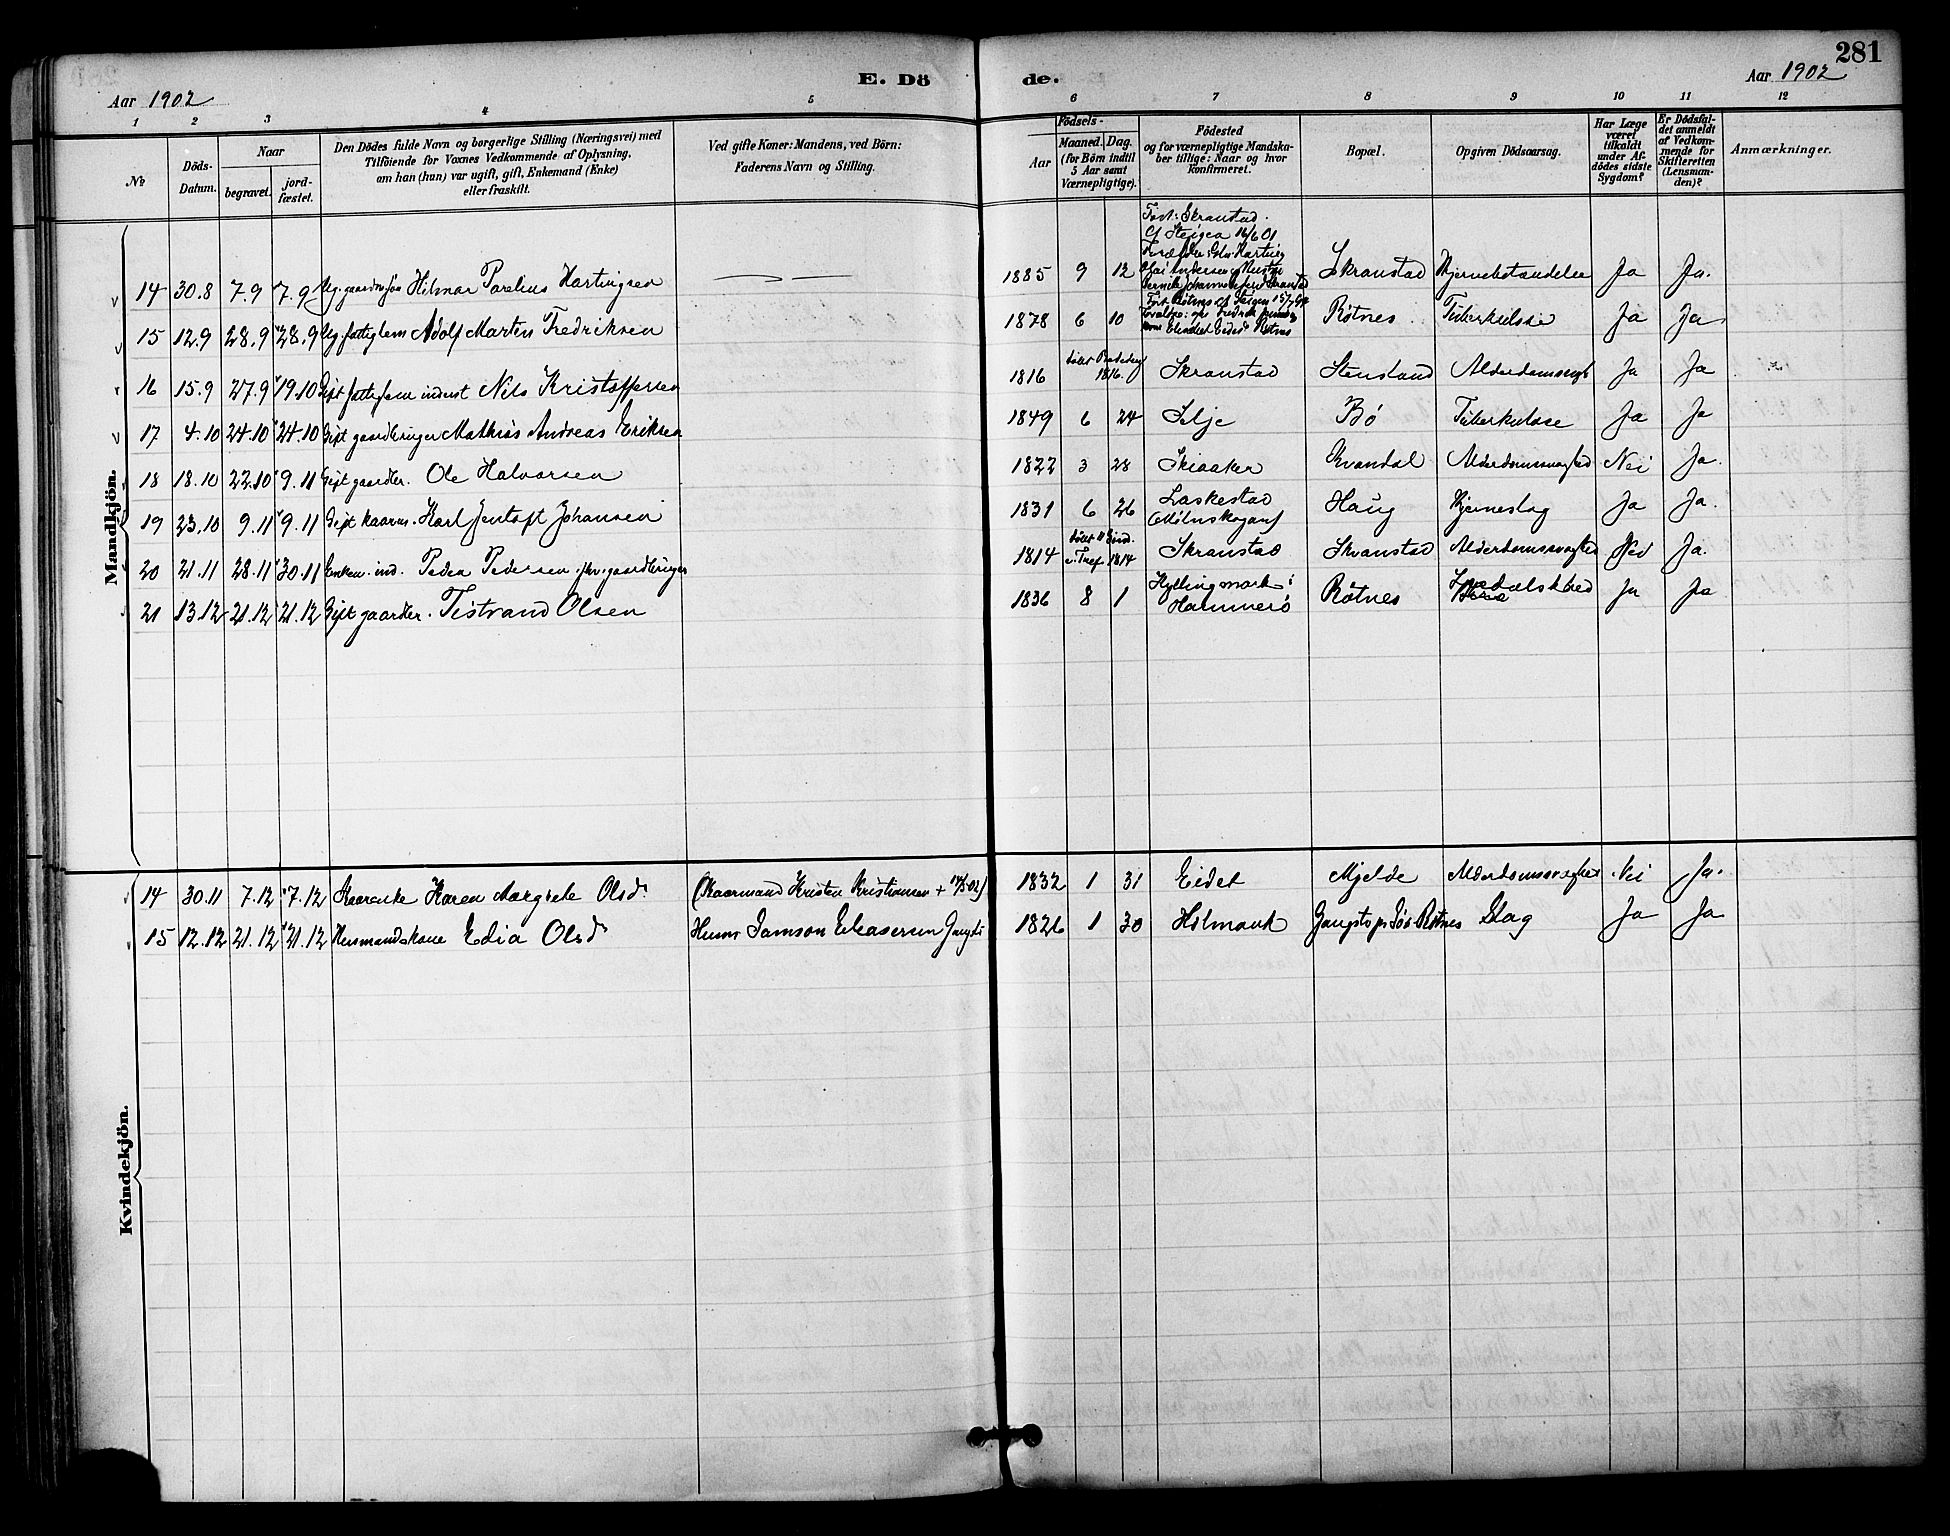 281
E. Dö de.
Aar 1902 Aar 1902
1 2 3 4 5 6 7 8 9 10 11 12
№
Döds-Datum.
Naar
begravet. jord-fæstet.
Den Dödes fulde Navn og borgerlige Stilling (Næringsvei) med
Tilföiende for Voxnes Vedkommende af Oplysning,
om han (hun) var ugift, gift, Enkemand (Enke)
eller fraskilt.
Ved gifte Koner: Mandens, ved Börn:
Faderens Navn og Stilling.
Födsels-
Aar
Maaned. Dag.
(for Börn indtil
5 Aar samt
Værnepligtige).
Födested
og for værnepligtige Mandska-
ber tillige: Naar og hvor
konfirmeret.
Bopæl.
Opgiven Dödsaarsag.
Har Læge
været
tilkaldt
under Af-
dödes sidste
Sygdom?
Er Dödsfal-
det anmeldt
af Vedkom-
mende for
Skifteretten
(Lensman-
den)?
Anmærkninger.
Mandkjön.
14 30.8 7.9 7.9 Ug. gaardmsøn Hilmar Parelius Hartvigsen — — 1885 9 12 Født: Skranstad. Skranstad Hjernebetændelse Ja Ja.
15 12.9 28.9 28.9 Ug. fattiglem Adolf Martin Fredriksen 1878 6 10 Rötnes Tuberkulose Ja Ja
16 15.9 27.9 19.10 Gift fattiglem inderst Nils Kristoffersen 1816 1816. Skranstad Stensland Alderdomssvagh Ja Ja
17 4.10 24.10 24.10 Gift gaardbruger Mathias Andreas Eriksen 1849 6 24 Selje Bö Tuberkulose Ja Ja
18 18.10 22.10 9.11 Gift gaardbr. Ole Halvorsen 1822 3 28 Skiaaker Kvandal Alderdomssvaghed Nei Ja.
19 23.10 9.11 9.11 Gift kaarm. Karl Jentoft Johansen 1831 6 26 Laskestad Haug Hjerneslag Ja Ja.
20 21.11 28.11 30.11 Enkem. ind. Peder Pedersen fhv. gaardbruger 1814 1814 Skranstad Skranstad Alderdomssvaghed Nei Ja.
21 13.12 21.12 21.12 Gift gaardbr. Tistrand Olsen 1836 8 1 Hyllingmark i Hammerö Rötnes Ja Ja
Kvindekjön.
14 30.11 7.12 7.12 Kaarenke Karen Margrete Olsd. (Kaarmand Kristen Kristiansen + 1832 1 31 Eidet Mjelde Alderdomssvaghed Nei Ja.
15 12.12 21.12 21.12 Husmandskone Edia Olsd Husm Samson Eleasersen 1826 1 30 Holmank Rötnes Slag Ja Ja